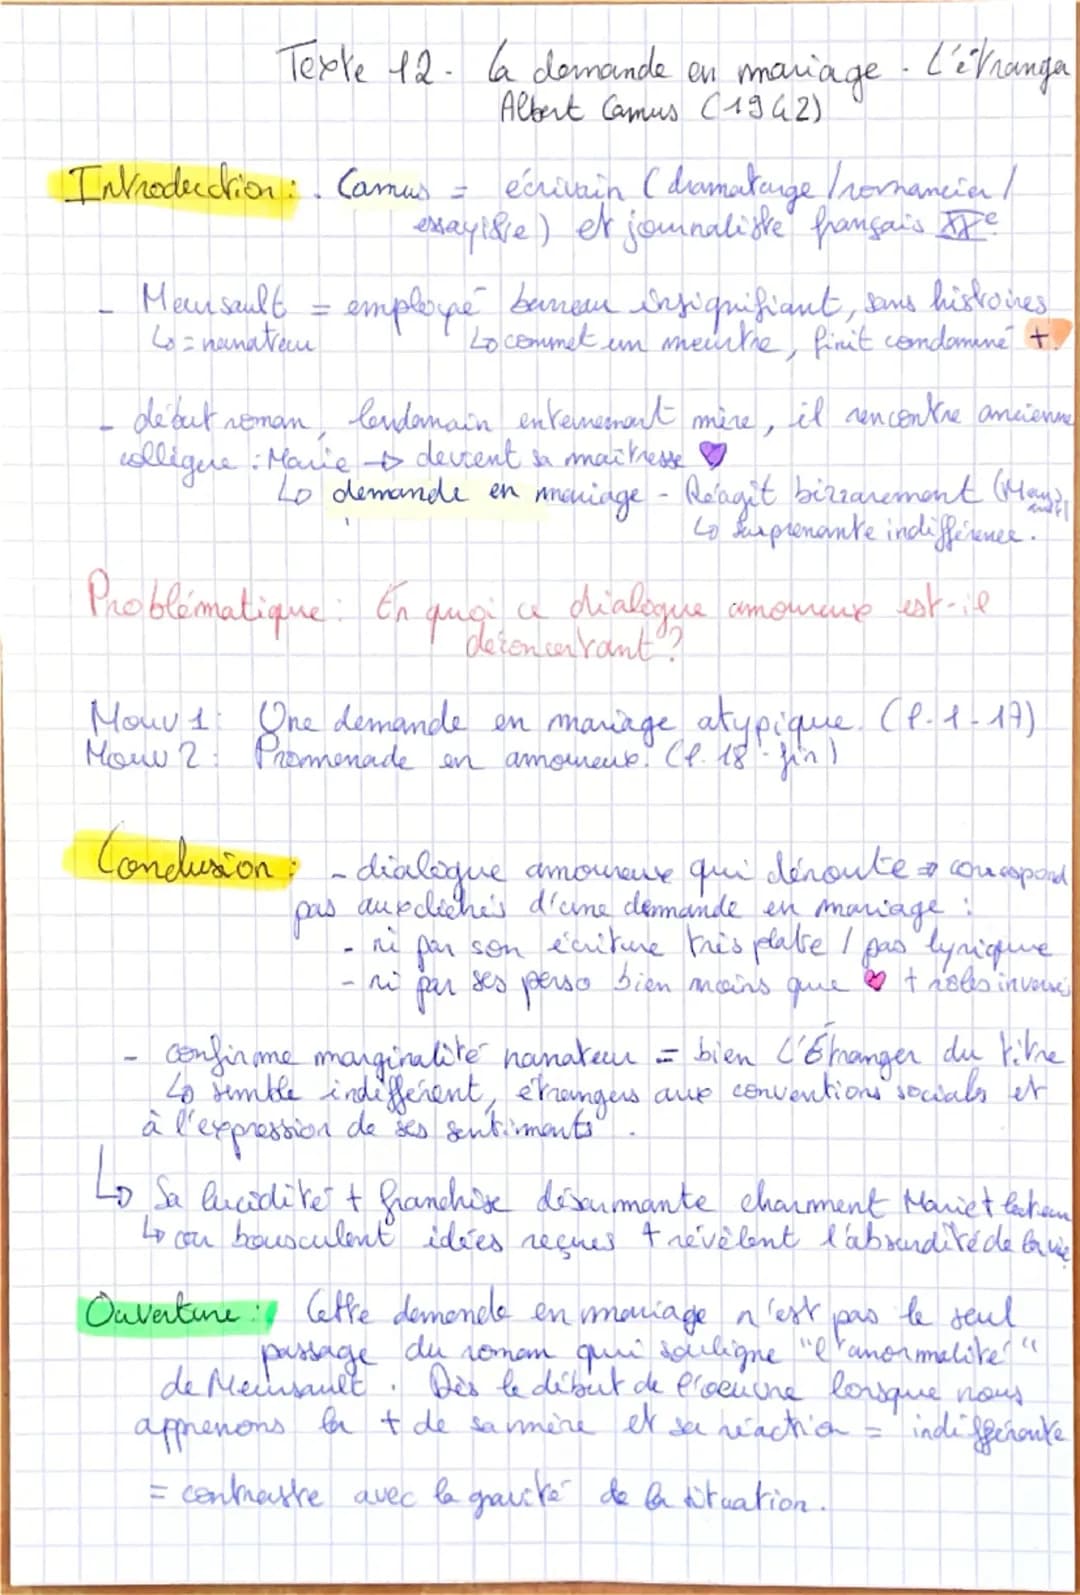 Texte 12 - La demande en mariage - L'étranger
Albert Camus (1942)
Introduction : . Camus = écrivain (dramaturge / romancier /
essayiste) et journaliste français XXe
- Meursault = employé bureau insignifiant, sans histoires
↳ = narrateur ↳ commet un meurtre, finit condamné †
- début roman, lendemain enterrement mère, il rencontre ancienne
collègue : Marie → devient sa maîtresse 💜
↳ demande en mariage - Réagit bizzarement (Meursault)
↳ surprenante indifférence.
Problématique : En quoi ce dialogue amoureux est-il
déconcertant ?
Mouv 1 : Une demande en mariage atypique. (l. 1 - 17)
Mouv 2 : Promenade en amoureux. (l. 18 - fin)
Conclusion : - dialogue amoureux qui déroute ⇒ correspond
pas aux clichés d'une demande en mariage :
- ni par son écriture très plate / pas lyrique
- ni par ses perso bien moins que ♥ + rôles inversés
- confirme marginalité narrateur = bien L'Étranger du titre
↳ semble indifférent, étrangers aux conventions sociales et
à l'expression de ses sentiments.
↳ Sa lucidité + franchise désarmante charment Marie + lecteur
↳ car bousculent idées reçues + révèlent l'absurdité de la vie
Ouverture : Cette demande en mariage n'est pas le seul
passage du roman qui souligne "l'anormalité"
de Meursault. Dès le début de l'oeuvre lorsque nous
apprenons la † de sa mère et sa réaction = indifférente
= contraste avec la gravité de la situation.